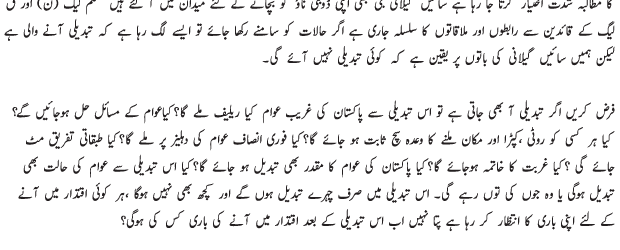 کا مطالبہ شدت اختیار کرتا جا رہا ہے سائیں گیلانی جی بھی اپنی ڈوبتی ناؤ کو بچانے کے لئے میدان میں آ گئے ہیں مسلم لیگ (ن) اور ق
لیگ کے قائدین سے رابطوں اور ملاقاتوں کا سلسلہ جاری ہے اگر حالات کو سامنے رکھا جائے تو ایسے لگ رہا ہے کہ تبدیلی آنے والی ہے
لیکن ہمیں سائیں گیلانی کی باتوں پر یقین ہے کہ کوئی تبدیلی نہیں آئے گی۔
فرض کریں اگر تبدیلی آ بھی جاتی ہے تو اس تبدیلی سے پاکستان کی غریب عوام کیا ریلیف ملے گا؟کیاعوام کے مسائل حل ہوجائیں گے؟
کیا ہر کسی کو روٹی ،کپڑا اور مکان ملنے کا وعدہ سچ ثابت ہو جائے گا؟کیا فوری انصاف عوام کی دہلیز پر ملے گا؟کیا طبقاتی تفریق مٹ
جائے گی ؟کیا غربت کا خاتمہ ہوجائے گا؟کیا پاکستان کی عوام کا مقدر بھی تبدیل ہو جائے گا؟کیا اس تبدیلی سے عوام کی حالت بھی
تبدیل ہوگی یا وہ جوں کی توں رہے گی۔ اس تبدیلی میں صرف چہرے تبدیل ہوں گے اور کچھ بھی نہیں ہوگا ،ہر کوئی اقتدار میں آنے
کے لئے اپنی باری کا انتظار کر رہا ہے پتا نہیں اب اس تبدیلی کے بعد اقتدار میں آنے کی باری کس کی ہوگی؟